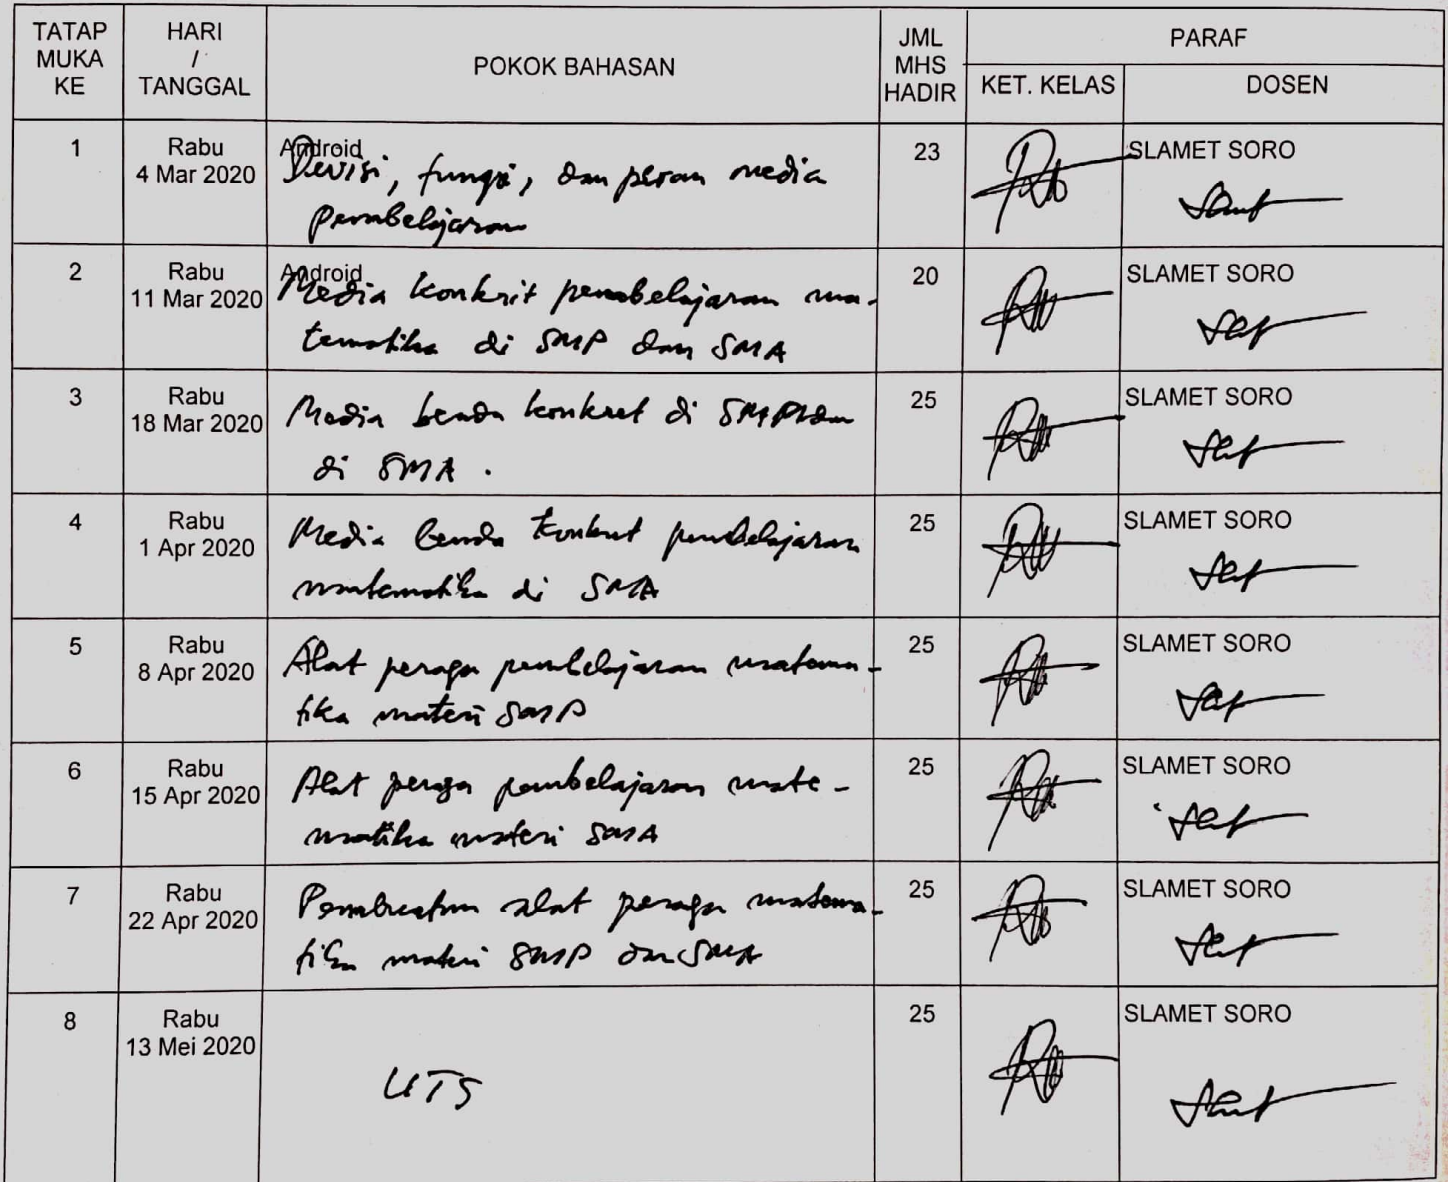 TATAP MUKA KE
HARI / TANGGAL
POKOK BAHASAN
JML MHS HADIR
PARAF
KET. KELAS
DOSEN
1
Rabu
4 Mar 2020
Android
Devisi, fungsi, dan peran media
pembelajaran
23
SLAMET SORO
2
Rabu
11 Mar 2020
Android
Media konkrit pembelajaran ma-
tematika di SMP dan SMA
20
SLAMET SORO
3
Rabu
18 Mar 2020
Media benda konkret di SMP dan
di SMA .
25
SLAMET SORO
4
Rabu
1 Apr 2020
Media benda konkret pembelajaran
matematika di SMA
25
SLAMET SORO
5
Rabu
8 Apr 2020
Alat peraga pembelajaran matema-
tika materi SMP
25
SLAMET SORO
6
Rabu
15 Apr 2020
Alat peraga pembelajaran mate-
matika materi SMA
25
SLAMET SORO
7
Rabu
22 Apr 2020
Pembuatan alat peraga matema-
tika materi SMP dan SMA
25
SLAMET SORO
8
Rabu
13 Mei 2020
UTS
25
SLAMET SORO